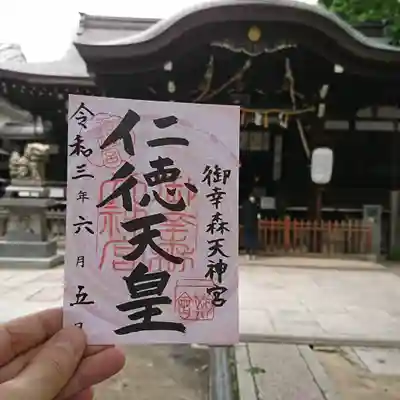 御幸森天神宮
仁徳天皇
令和三年六月五日